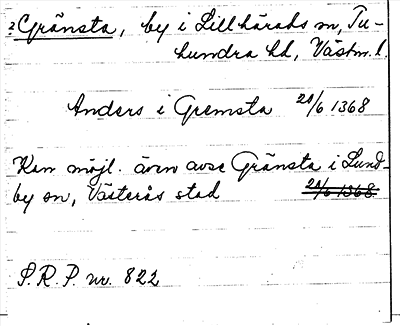 ? Gränsta, by i Lillhärads sn, Tu-
hundra hd, Västm. l.
Anders i Gremsta 20/6 1368
Kan möjl. även avse Gränsta i Lund-
by sn, Västerås stad 20/6 1368
S.R.P. nr. 822